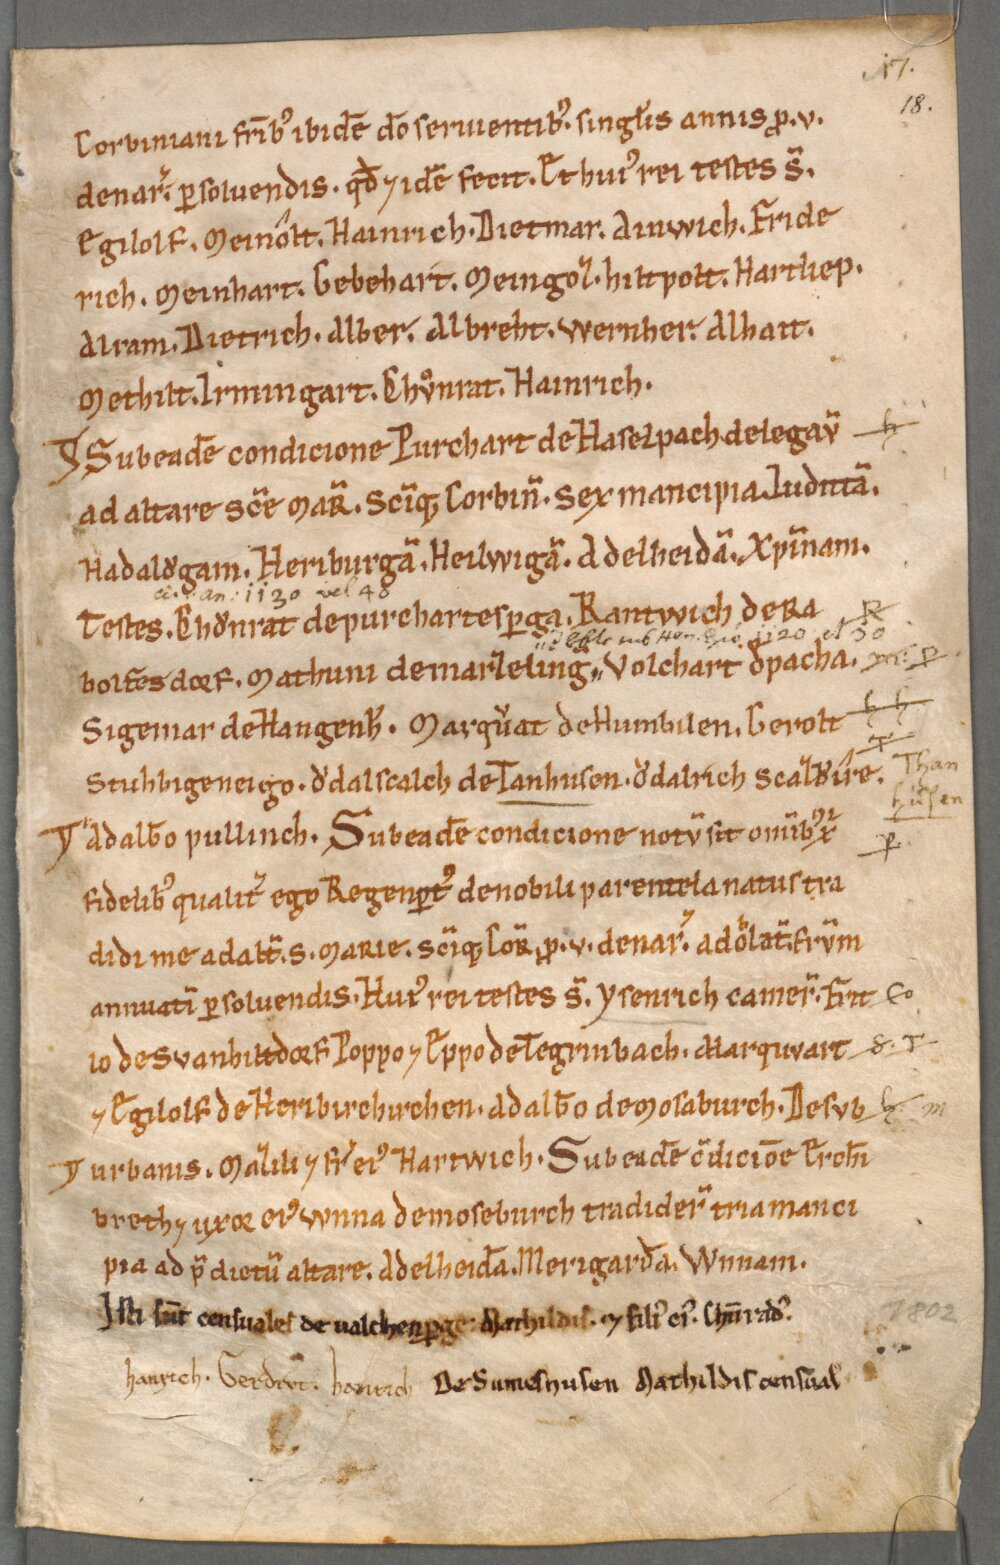 17.
18.
Corbiniani fr̄ib; ibidē dō seruientib;. singl̄is annis ꝓ. v.
denar̄. ꝑsoluendis. qđ ⁊ idē fecit. Et hui᷒ rei testes s̄.
Egilolf. Meinolt. Hainrich. Dietmar. Ainwich. Fride
rich. Meinhart. Gebehart. Meingoz. hiltpolt. Hartliep.
Alram. Dietrich. Alber. Albreht. Wernher. Alhait.
Methilt. Irmingart. Chůnrat. Hainrich.
Sub eadē condicione Purchart de Haselpach delegaṽ
h
ad altare sc̄e MAR̄. Sc̄iq; Corbin̄. sex mancipia. Iudittā.
Hadalŏgam. Heriburgā. Heilwigā. Adelheidā. Xpīnam.
ci. an: 1130 vel 40
Testes. Chŏnrat de purchartesꝑga. Rantwich de RA
R
1120 et 30
boltēsdorf. Mathuni de marzeling. Volchart đ pacha.
m. p
Sigemar de Hangenh̄. Marqũat de Humbilen. Gerolt
h h
Stuhbigeneigo. ŏdalscalch de Tanhusen. ŏdalrich
T
Than
husen
Adalb̄o pullinch. Sub eadē condicione notū sit omīb;
p
fidelib; qualit̄ ego Regenꝑt᷒ de nobili parentela natus tra
didi me ad alt̄. S. MARIE. sc̄iq; COR̄. ꝓ. v. denar̄. ad obl̄at. fr̄vm
annuatī ꝑsoluendis. Hui᷒ rei testes s̄. ysenrich camer̄. Frit
co
io de Svanhiltdorf Poppo ⁊ Eppo de Tegrinbach. Marquvart
d. T
⁊ Egilolf de Heribirchirchen. Adalb̄o de Mosaburch. De svb
h. m
urbanis. Mazili ⁊ fr̄ ei᷒ Hartwich. Sub eadē c̄dicioē Erch̄
breth ⁊ uxor ei᷒ Wnna de moseburch tradider̄ tria manci
pia ad p̄dictū altare. Adelheidā. Merigardā. Wnnam.
Isti sūt censuales de ualchenꝑge. Mathildis. ⁊ fili᷒ ei᷒. Chūrad᷒.
7802
hanrich. Gerdrvt. hainrich De Sumeshusen Mathildis censual